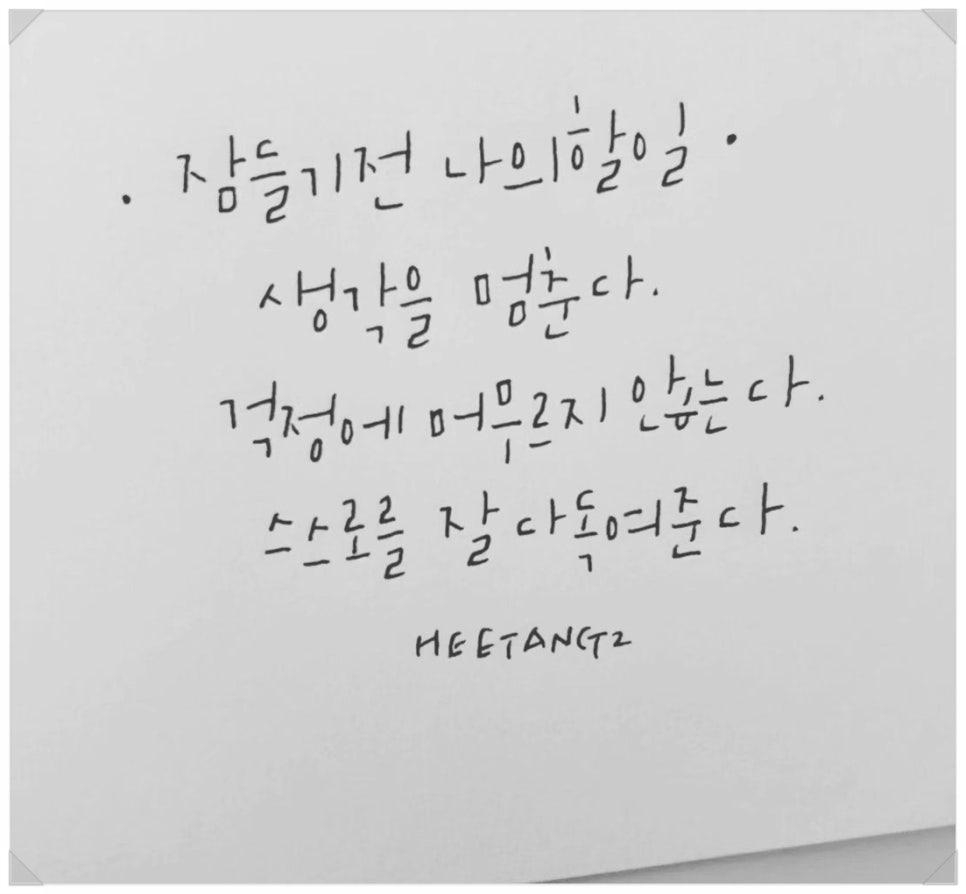 . 잠들기전 나의할일 .
생각을 멈춘다.
걱정에 머무르지 않는다.
스스로를 잘 다독여준다.
HEETANGT2